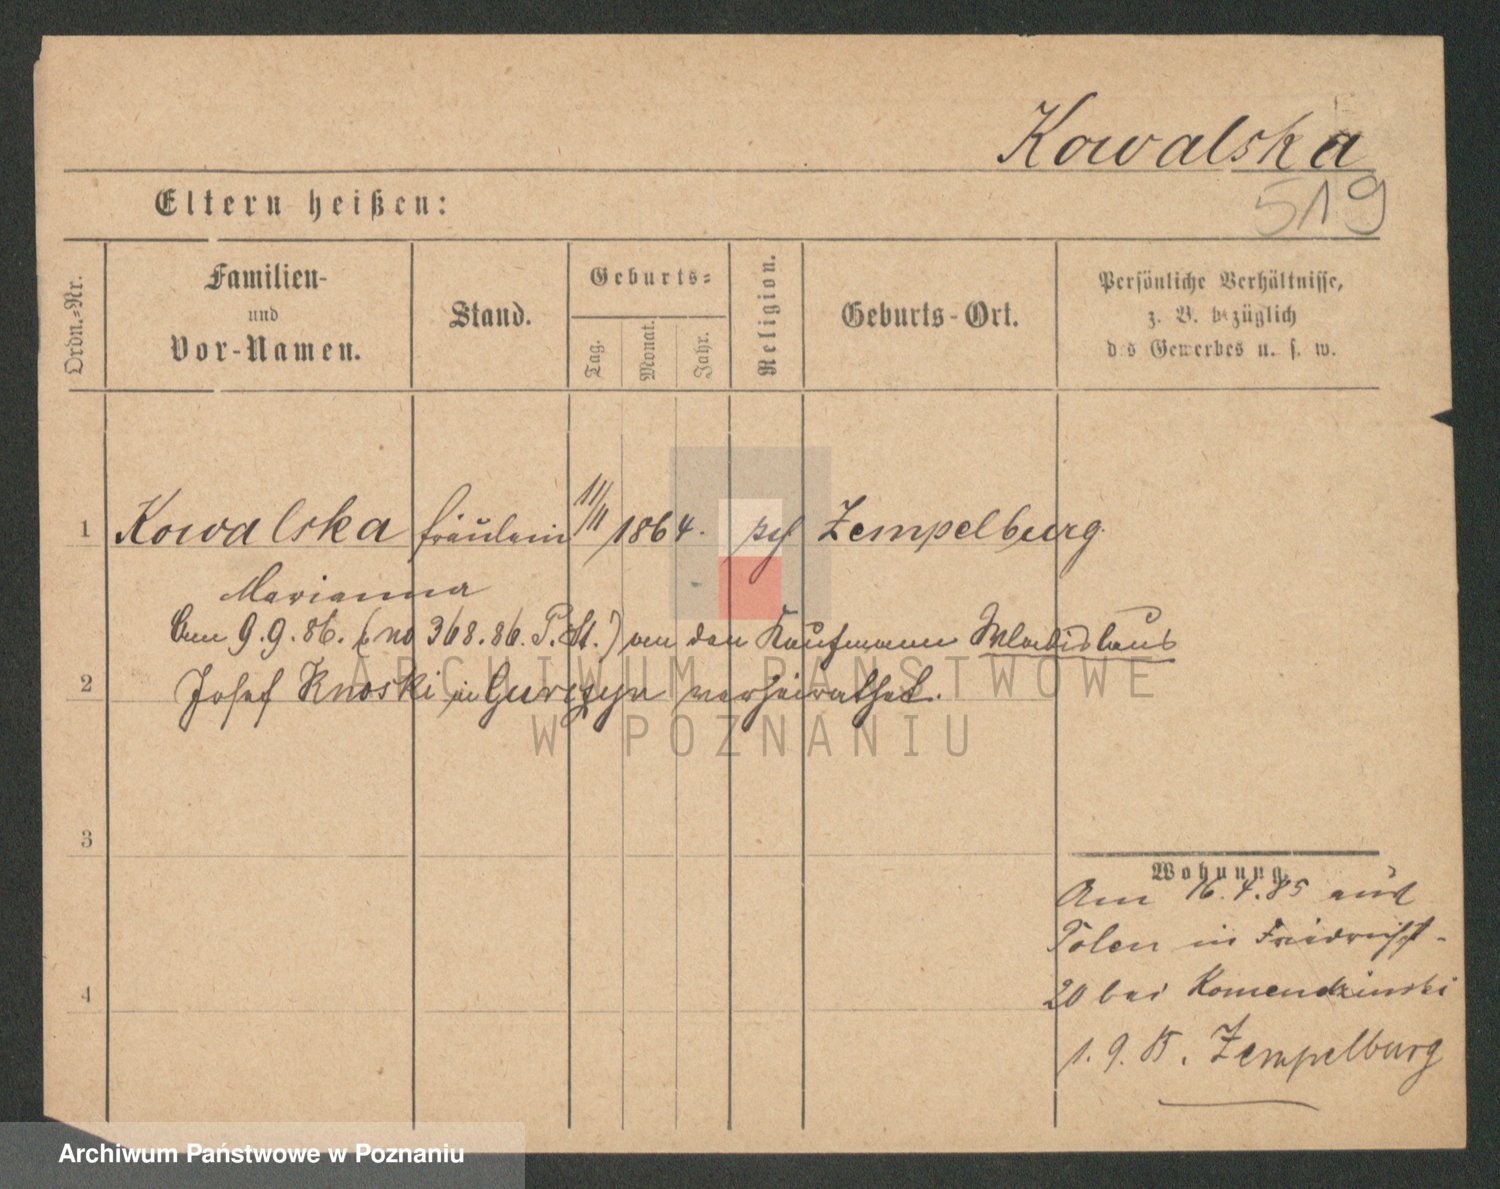 Kowalska
519
Eltern heißen:
Ordn.-Nr.
Familien-
und
Vor-Namen.
Stand.
Geburts-
Tag.
Monat.
Jahr.
Religion.
Geburts-Ort.
Persönliche Verhältnisse,
z. B. bezüglich
des Gewerbes u. s. w.
1 Kowalska Fräulein 11/11 1864. Zempelburg.
Marianna
Am 9.9.86. (no 368.86. P. St.) an den Kaufmann Wladislaus
2 Josef Knoski in Gurczyn verheirathet.
3
Wohnung.
Am 16.4.85 aus
Polen in Friedrichst-
4
20 bei Komendzinski
1. 9. 85. Zempelburg
ARCHIWUM PAŃSTWOWE
W POZNANIU
Archiwum Państwowe w Poznaniu